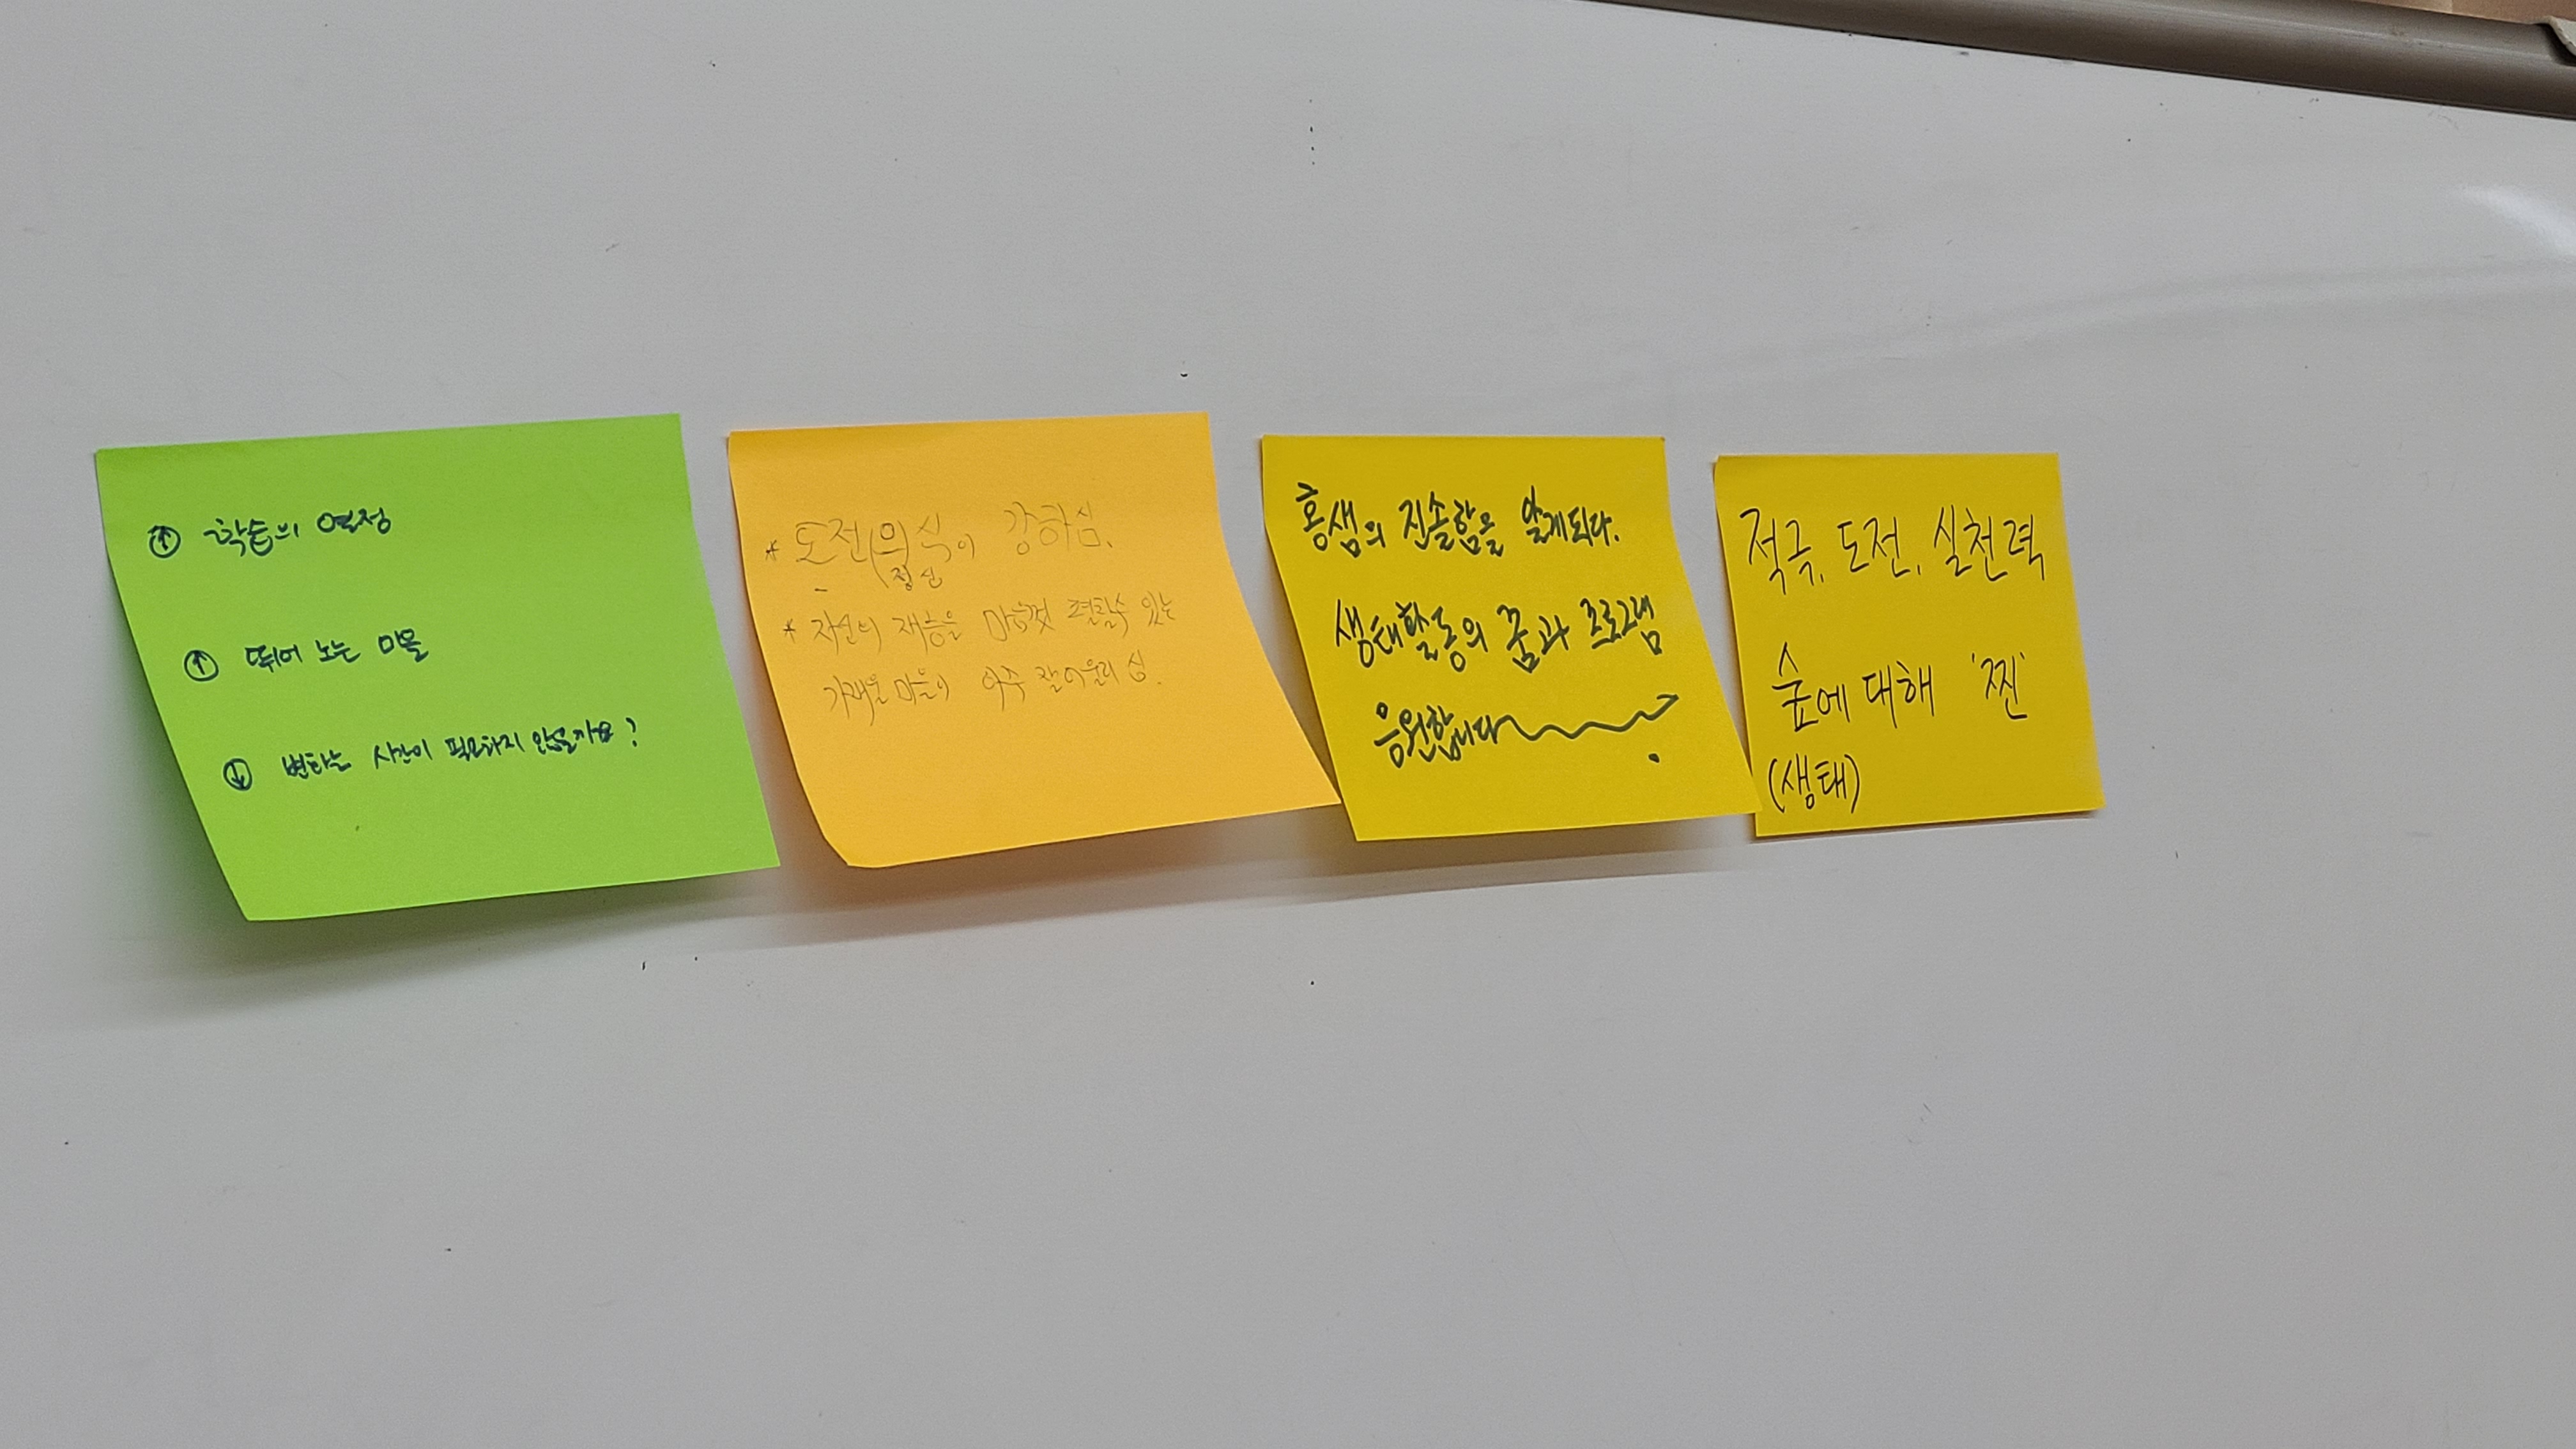 ↑ 학습의 열정
↑ 뛰어 노는 마을
↓ 변하는 시간이 필요하지 않을까요?
* 도전(의)식이 강하심.
정신
* 자신의 재능을 마음껏 펼칠수 있는
가재울마을이 아주 잘어울리심.
홍샘의 진솔함을 알게되다.
생태활동의 꿈과 프로그램
응원합니다
적극, 도전, 실천력
숲에 대해 '찐'
(생태)